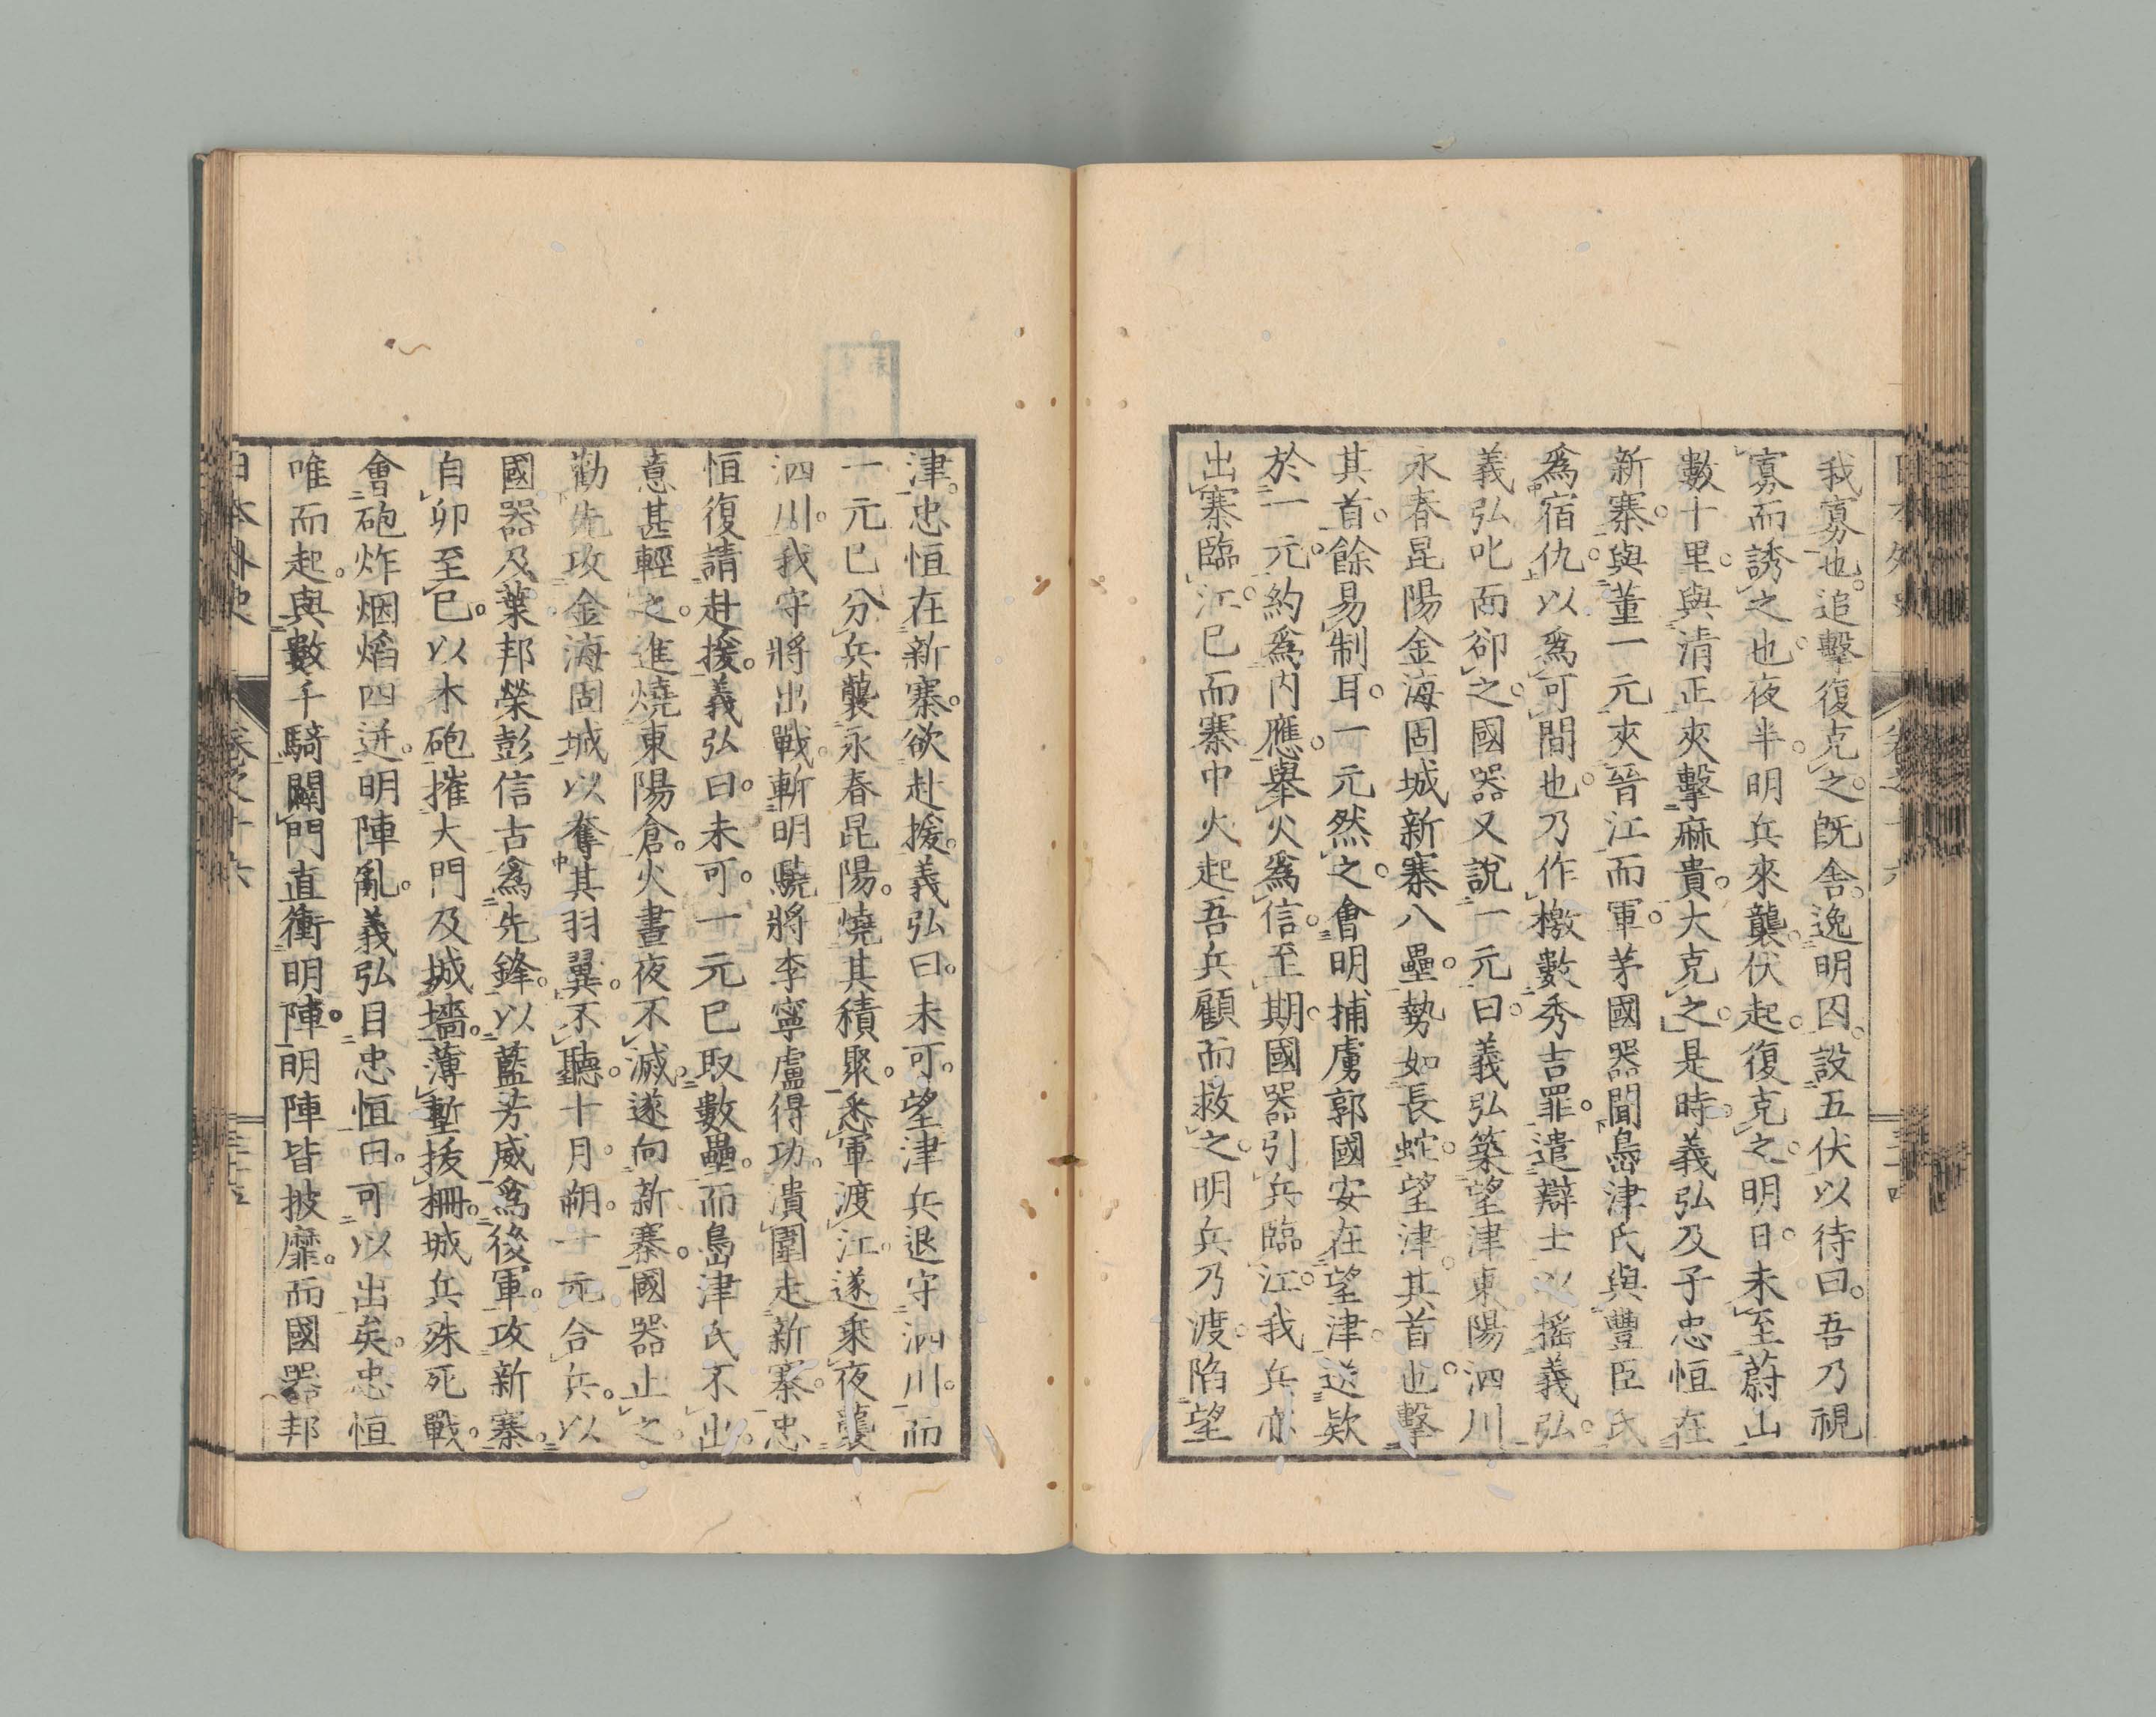 日本外史 卷之十六
我寡也。追擊復克之。既舍。逸明囚。設五伏以待曰。吾乃視
寡而誘之也。夜半。明兵來襲。伏起。復克之。明日。未至蔚山
數十里。與清正夾擊麻貴。大克之。是時義弘及子忠恒在
新寨。與董一元夾晉江而軍。茅國器聞島津氏與豐臣氏
爲宿仇。以爲可間也。乃作檄數秀吉罪。遣辯士以搖義弘。
義弘叱而卻之。國器又說一元曰。義弘築望津東陽泗川
永春昆陽金海固城新寨八壘。勢如長蛇。望津。其首也。擊
其首。餘易制耳。一元然之。會明捕虜郭國安在望津。送款
於一元。約爲内應。舉火爲信。至期。國器引兵臨江。我兵亦
出寨臨江。已而寨中火起。吾兵顧而救之。明兵乃渡。陷望
津。忠恒在新寨。欲赴援。義弘曰。未可。望津兵退守泗川。而
一元已分兵襲永春昆陽。燒其積聚。悉軍渡江。遂乘夜襲
泗川。我守將出戰。斬明驍將李寧盧得功。潰圍走新寨。忠
恒復請赴援。義弘曰。未可。一元已取數壘。而島津氏不出。
意甚輕之。進燒東陽倉。火晝夜不滅。遂向新寨。國器止之。
勸先攻金海固城以奪其羽翼。不聽。十月朔。一元合兵。以
國器及葉邦榮彭信古爲先鋒。以藍芳威爲後軍。攻新寨。
自卯至巳。以木砲摧大門及城墻。薄塹拔柵。城兵殊死戰。
會砲炸烟焰四迸。明陣亂。義弘目忠恒曰。可以出矣。忠恒
唯而起。與數千騎闢門直衝明陣。明陣皆披靡。而國器邦
日本外史 卷之十六